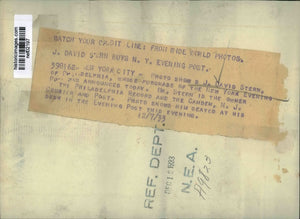 WATCH YOUR CREDIT LINE: FROM WIDE WORLD PHOTOS.
J. DAVID STERN BUYS N. Y. EVENING POST.
NEW YORK CITY - PHOTO SHOWS J. DAVID STERN,
OF WHOSE PURCHASE OF THE NEW YORK EVENING
WAS ANNOUNCED TODAY. MR. STERN IS THE OWNER
THE PHILADELPHIA RECORD AND THE CAMDEN, N. J.
AND POST. PHOTO SHOWS HIM SEATED AT HIS
DESK IN THE EVENING POST THIS EVENING.
12/7/33
REF. DEPT.
1933
N.E.A.
historicimages.com